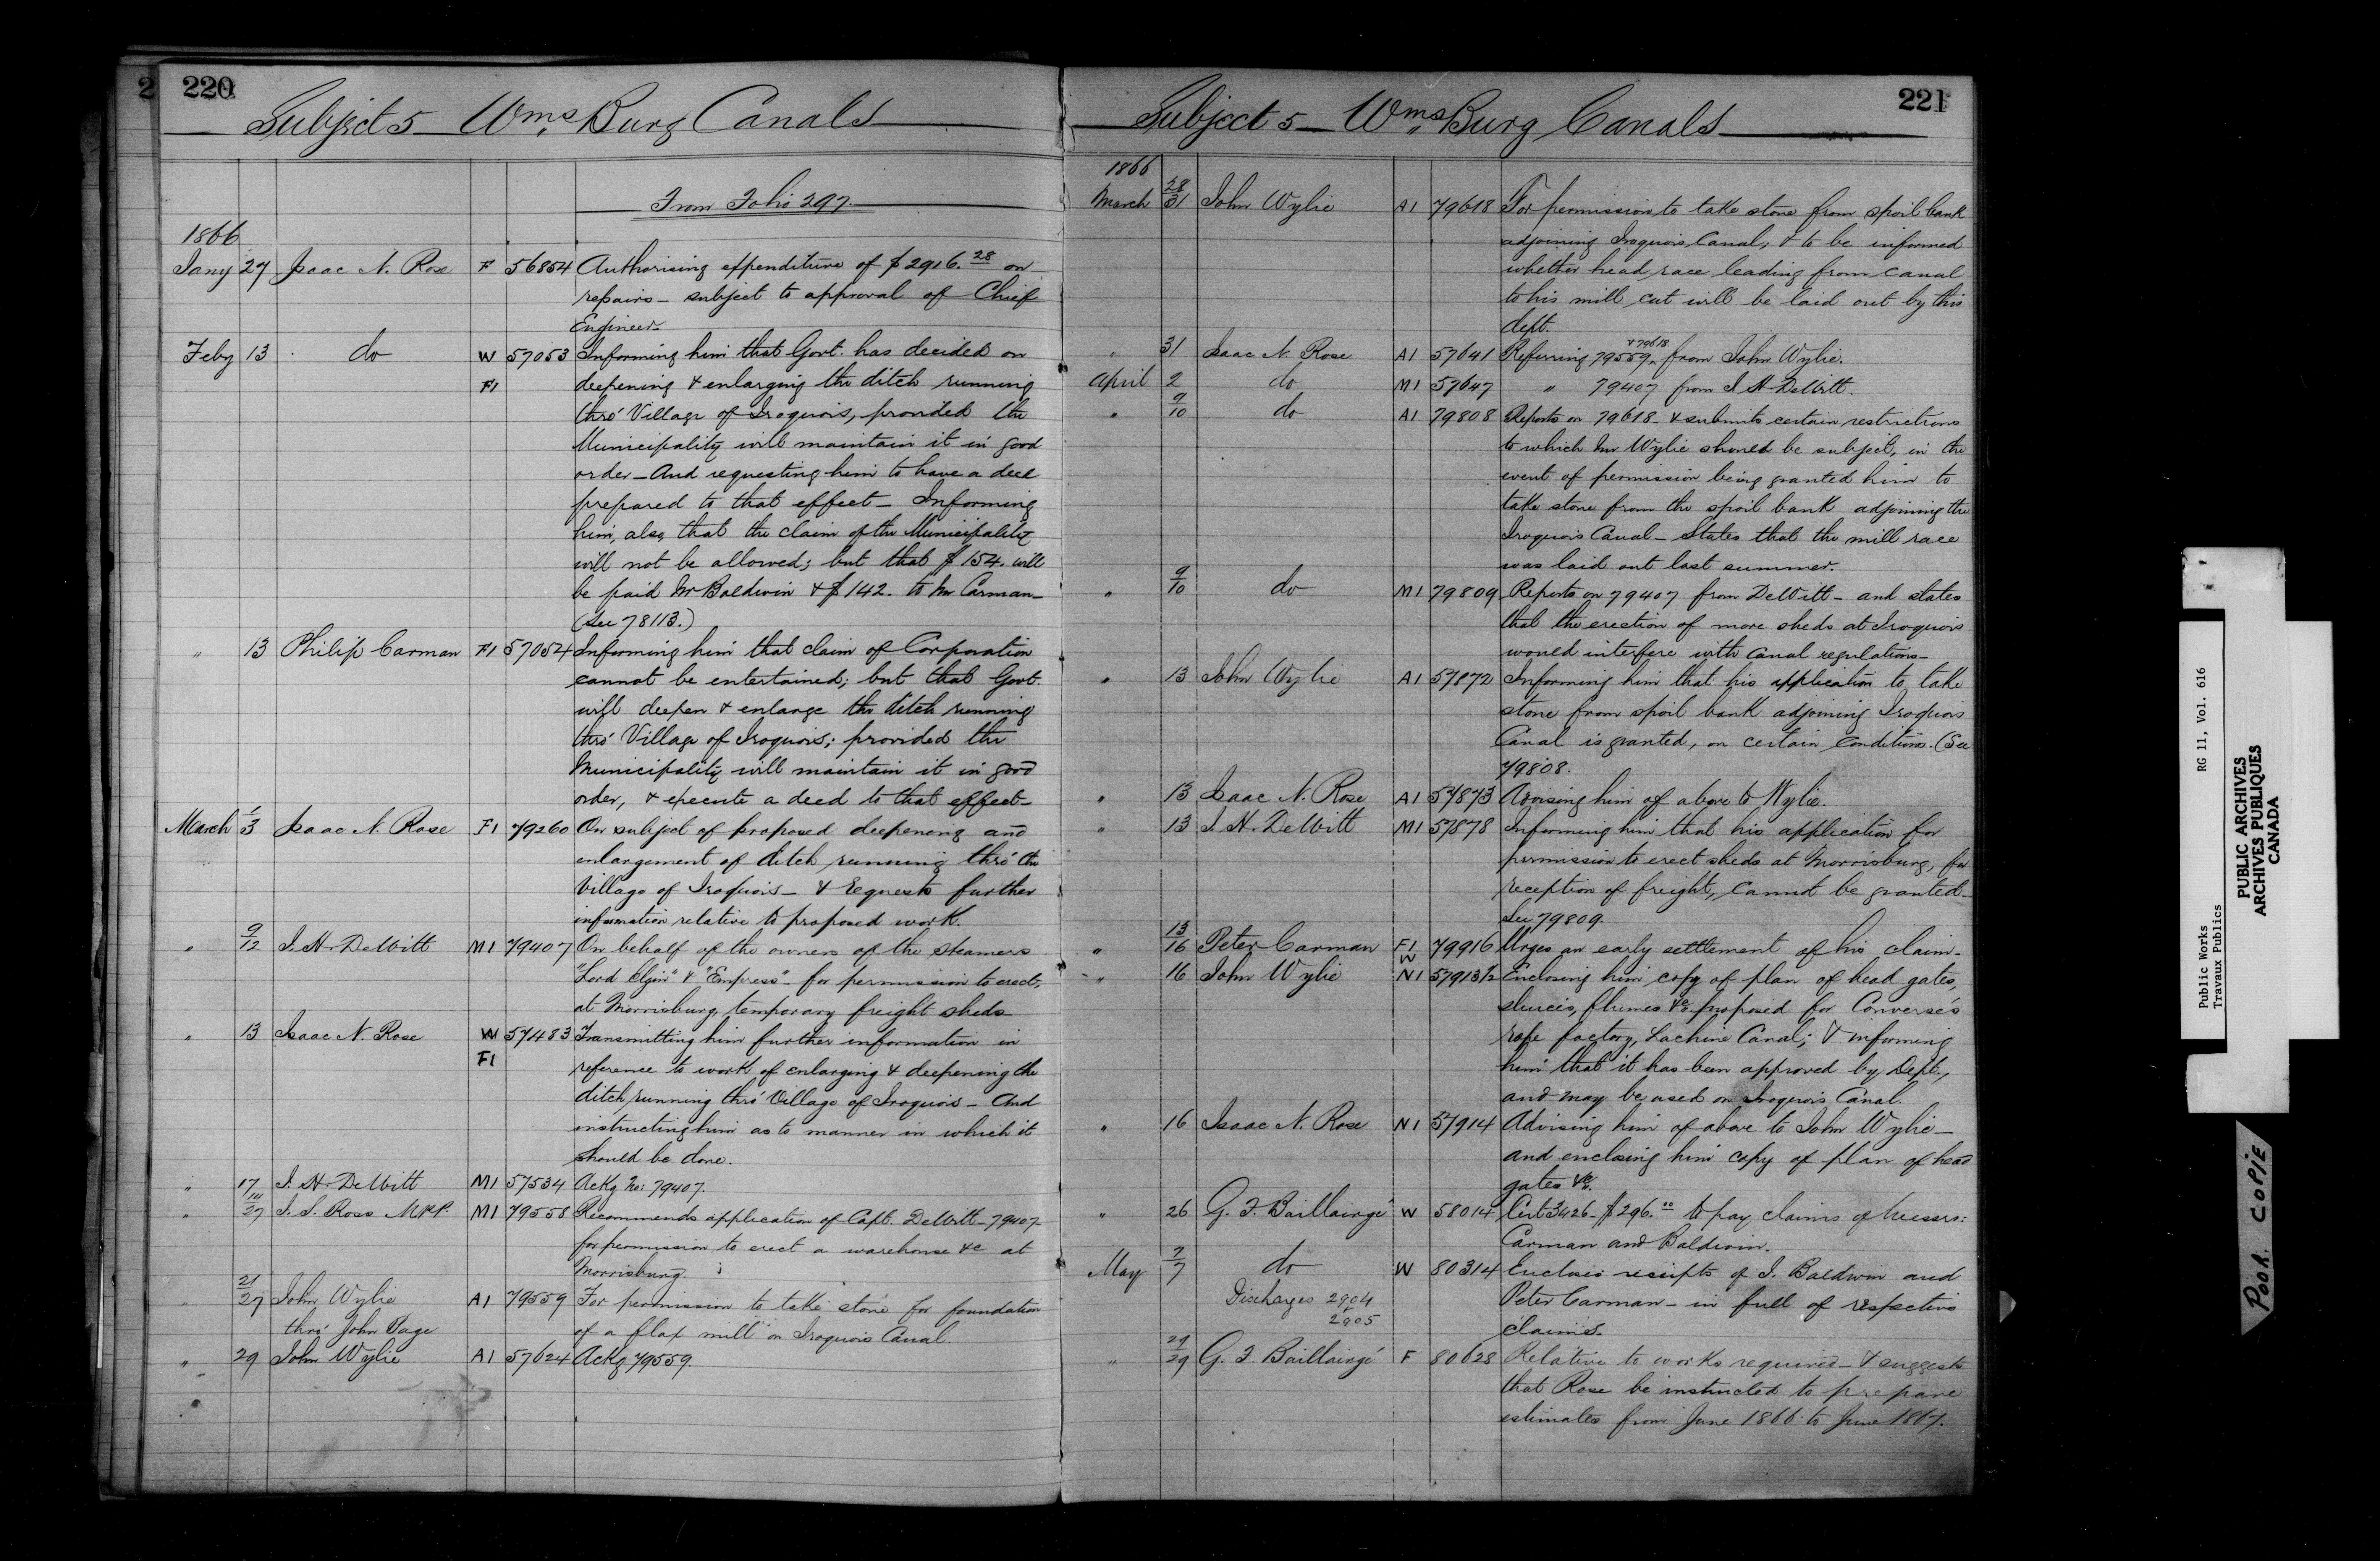 2 220
Subject 5 Wms Burg Canals
From Folio 297.
1866
Jany 27 Isaac N. Rose F 56854 Authorising expenditure of $2916.28 on
repairs – subject to approval of Chief
Engineer –
Feby 13 do W 57053 Informing him that Govt. has decided on
F1 deepening & enlarging the ditch running
thro' Village of Iroquois, provided the
Municipality will maintain it in good
order – And requesting him to have a deed
prepared to that effect – Informing
him, also, that the claim of the Municipality
will not be allowed; but that $154. will
be paid Mr Baldwin & $142. to Mr Carman –
(See 78113.)
" 13 Philip Carman F1 57054 Informing him that claim of Corporation
cannot be entertained; but that Govt.
will deepen & enlarge the ditch running
thro' Village of Iroquois; provided the
Municipality will maintain it in good
order, & execute a deed to that effect –
March 1/3 Isaac N. Rose F1 79260 On subject of proposed deepening and
enlargement of ditch running thro' the
Village of Iroquois – & requests further
information relative to proposed work.
" 9/12 J. H. DeWitt M1 79407 On behalf of the owners of the steamers
"Lord Elgin" & "Empress" – for permission to erect,
at Morrisburg, temporary freight sheds
" 13 Isaac N. Rose W 57483 Transmitting him further information in
F1 reference to work of enlarging & deepening the
ditch running thro' Village of Iroquois – And
instructing him as to manner in which it
should be done.
" 17 J. H. DeWitt M1 57534 Ackg No: 79407.
" 14/27 J. S. Ross M.P.P. M1 79558 Recommends application of Capt. DeWitt – 79407
for permission to erect a warehouse &c at
Morrisburg.
" 21/27 John Wylie A1 79559 For permission to take stone for foundation
thro' John Page of a flax mill on Iroquois Canal.
" 29 John Wylie A1 57624 Ackg 79559.
221
Subject 5 – Wms Burg Canals
1866
March 28/31 John Wylie A1 79618 For permission to take stone from spoil bank
adjoining Iroquois Canal, & to be informed
whether head race leading from canal
to his mill cut will be laid out by this
dept.
" 31 Isaac N. Rose A1 57641 Referring 79559 & 79618 from John Wylie.
April 2 do M1 57647 " 79407 from J. H. DeWitt.
" 9/10 do A1 79808 Reports on 79618 – & submits certain restrictions
to which Mr Wylie should be subject, in the
event of permission being granted him to
take stone from the spoil bank adjoining the
Iroquois Canal – States that the mill race
was laid out last summer.
" 9/10 do M1 79809 Reports on 79407 from DeWitt – and states
that the erection of more sheds at Iroquois
would interfere with canal regulations –
" 13 John Wylie A1 57872 Informing him that his application to take
stone from spoil bank adjoining Iroquois
Canal is granted, on certain conditions. (See
79808.
" 13 Isaac N. Rose A1 57873 Advising him of above to Wylie.
" 13 J. H. DeWitt M1 57878 Informing him that his application for
permission to erect sheds at Morrisburg, for
reception of freight, cannot be granted –
See 79809.
" 13/16 Peter Carman F1 W 79916 Urges an early settlement of his claim –
" 16 John Wylie N1 57913½ Enclosing him copy of plan of head gates,
sluices, flumes &c. proposed for Converse's
rope factory, Lachine Canal; & informing
him that it has been approved by Dept.,
and may be used on Iroquois Canal.
" 16 Isaac N. Rose N1 57914 Advising him of above to John Wylie –
and enclosing him copy of plan of head
gates &c.
" 26 G. F. Baillairgé W 58014 Cert 3426 – $296.00 to pay claims of Messrs:
Carman and Baldwin.
May 7/7 do W 80314 Encloses receipts of J. Baldwin and
Discharges 2904 Peter Carman – in full of respective
& 2905 claims.
" 29/29 G. F. Baillairgé F 80628 Relative to works required – & suggests
that Rose be instructed to prepare
estimates from June 1866 to June 1867.
Public Works RG 11, Vol. 616
Travaux Publics
PUBLIC ARCHIVES
ARCHIVES PUBLIQUES
CANADA
POOR COPIE